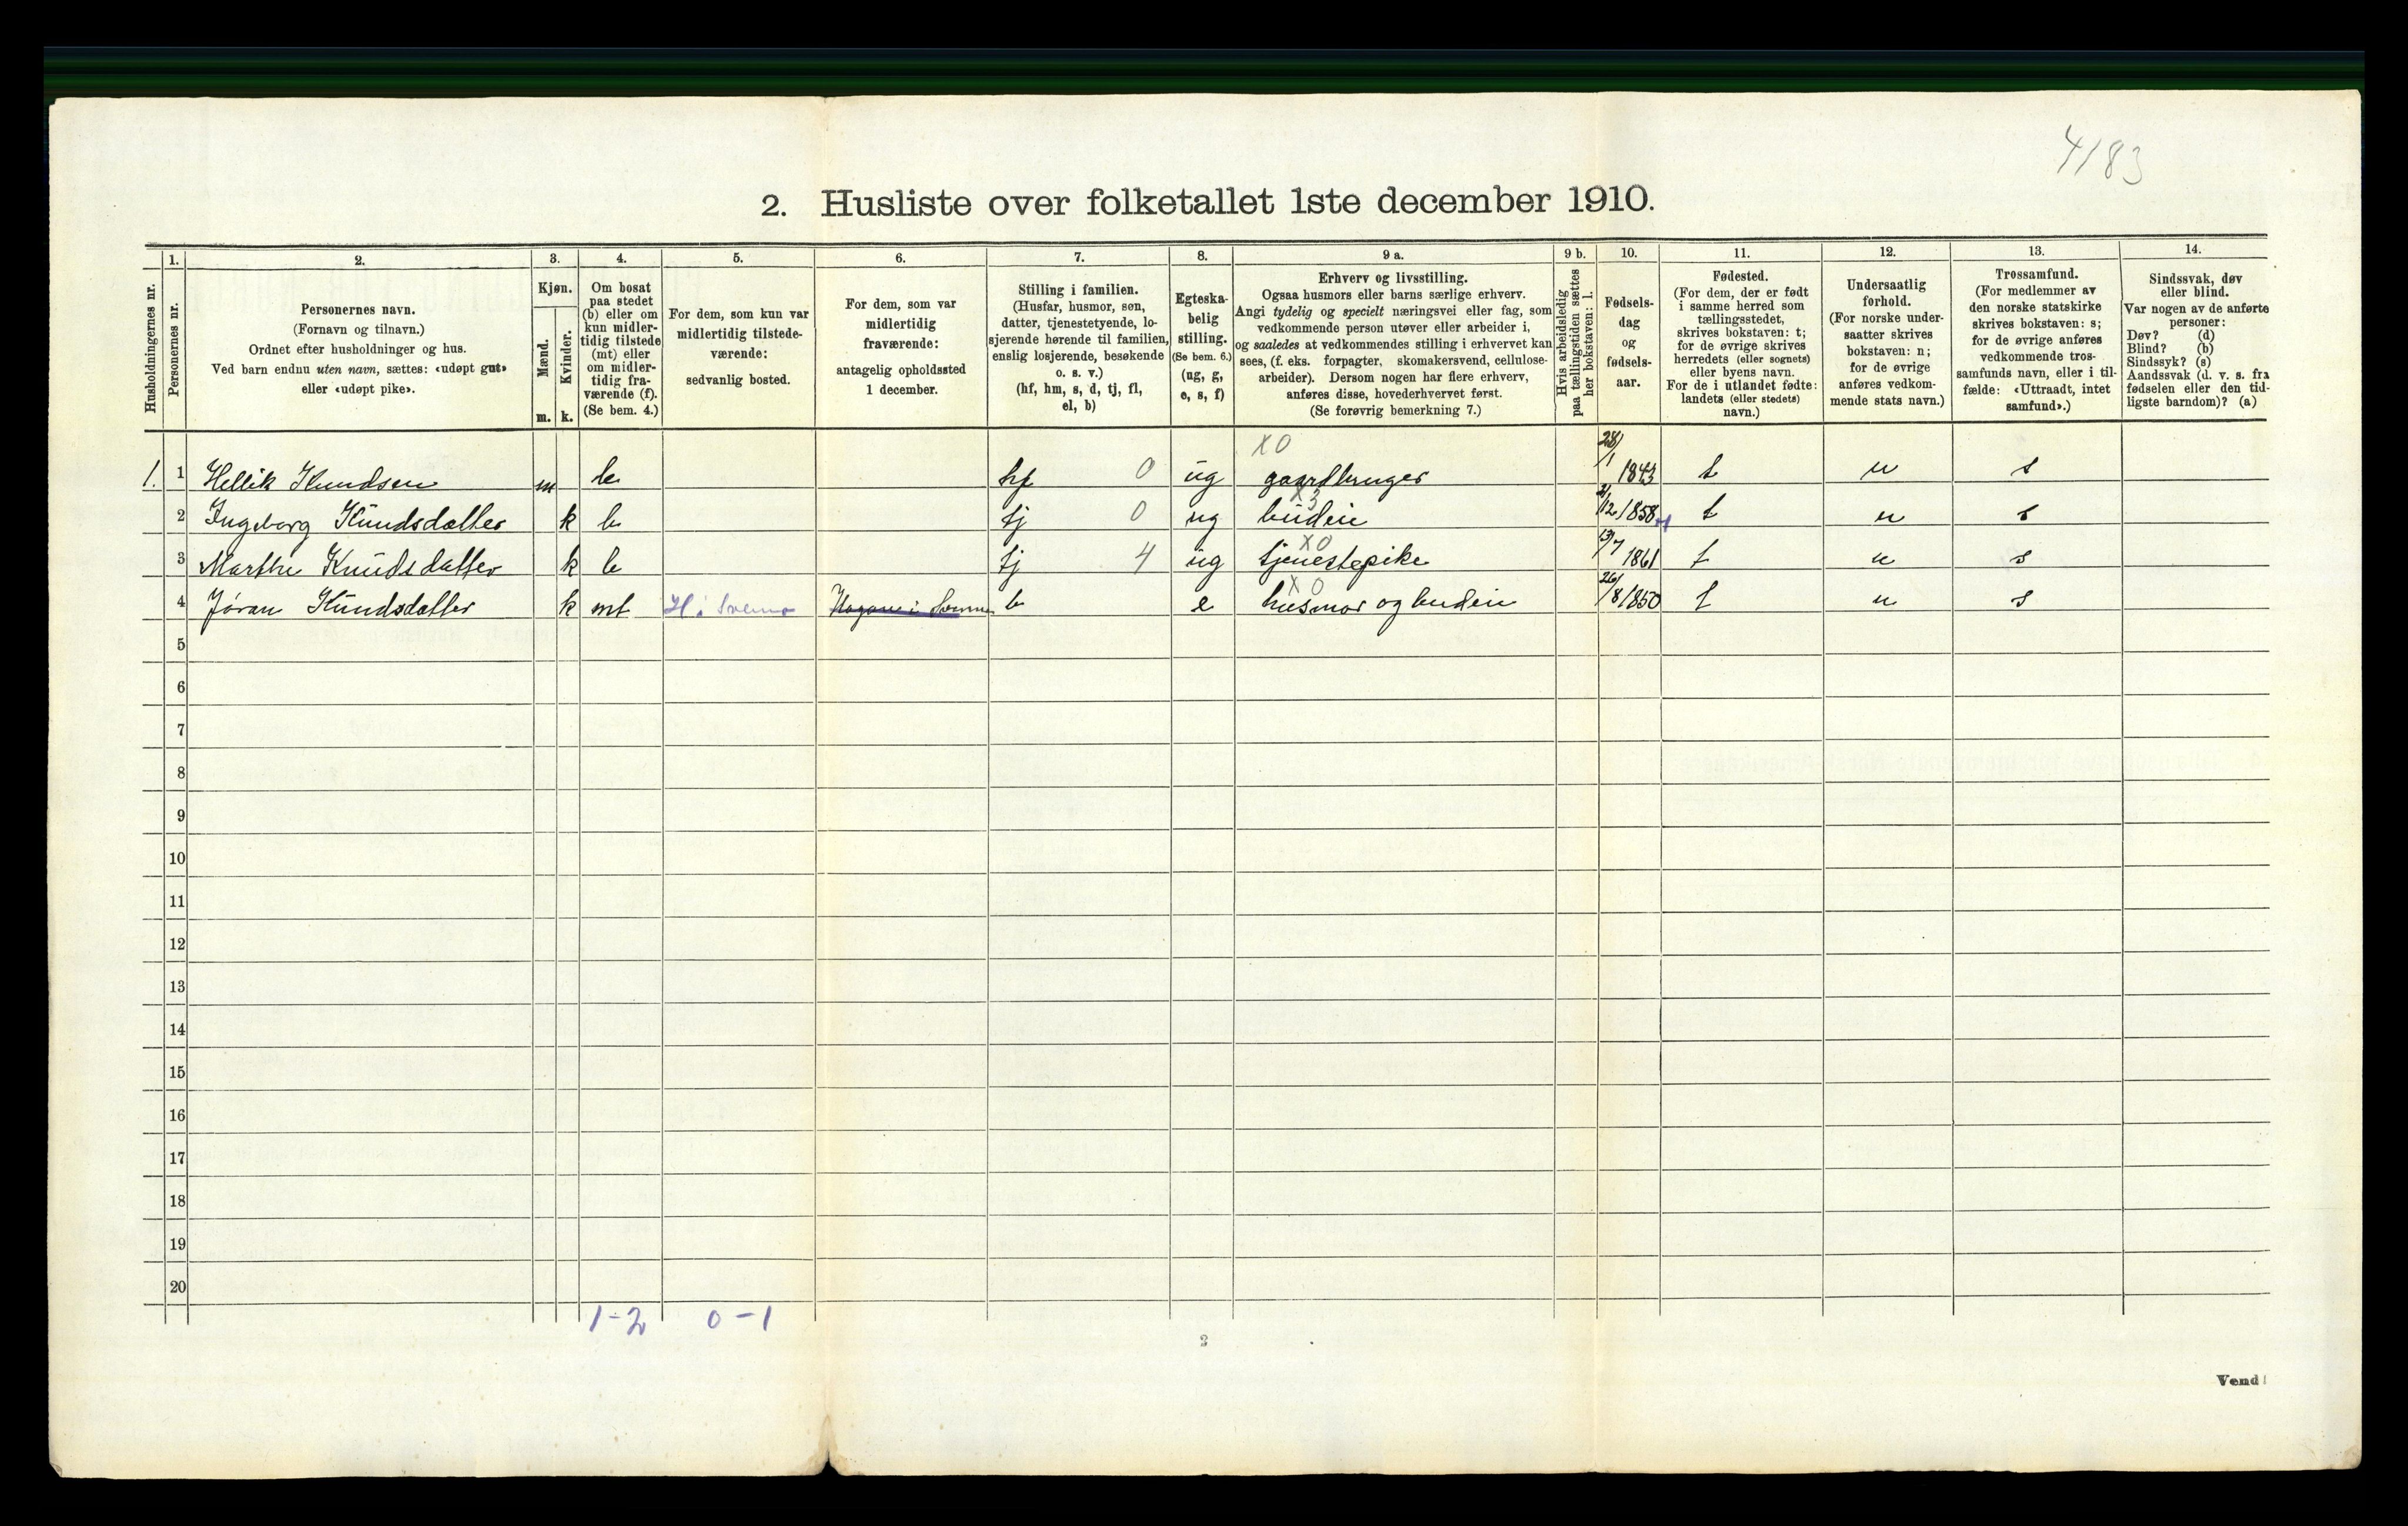 4183
2. Husliste over folketallet 1ste december 1910.
Husholdningernes nr.
1. Personernes nr.
2. Personernes navn.
(Fornavn og tilnavn.)
Ordnet efter husholdninger og hus.
Ved barn endnu uten navn, sættes: «udøpt gut»
eller «udøpt pike».
3. Kjøn.
Mænd. m.
Kvinder. k.
4. Om bosat
paa stedet
(b) eller om
kun midler-
tidig tilstede
(mt) eller
om midler-
tidig fra-
værende (f).
(Se bem. 4.)
5. For dem, som kun var
midlertidig tilstede-
værende:
sedvanlig bosted.
6. For dem, som var
midlertidig
fraværende:
antagelig opholdssted
1 december.
7. Stilling i familien.
(Husfar, husmor, søn,
datter, tjenestetyende, lo-
sjerende hørende til familien,
enslig losjerende, besøkende
o. s. v.)
(hf, hm, s, d, tj, fl,
el, b)
8. Egteska-
belig
stilling.
(Se bem. 6.)
(ug, g,
e, s, f)
9 a. Erhverv og livsstilling.
Ogsaa husmors eller barns særlige erhverv.
Angi tydelig og specielt næringsvei eller fag, som
vedkommende person utøver eller arbeider i,
og saaledes at vedkommendes stilling i erhvervet kan
sees, (f. eks. forpagter, skomakersvend, cellulose-
arbeider). Dersom nogen har flere erhverv,
anføres disse, hovederhvervet først.
(Se forøvrig bemerkning 7.)
9 b. Hvis arbeidsledig
paa tællingstiden sættes
her bokstaven: l.
10. Fødsels-
dag
og
fødsels-
aar.
11. Fødested.
(For dem, der er født
i samme herred som
tællingsstedet,
skrives bokstaven: t;
for de øvrige skrives
herredets (eller sognets)
eller byens navn.
For de i utlandet fødte:
landets (eller stedets)
navn.)
12. Undersaatlig
forhold.
(For norske under-
saatter skrives
bokstaven: n;
for de øvrige
anføres vedkom-
mende stats navn.)
13. Trossamfund.
(For medlemmer av
den norske statskirke
skrives bokstaven: s;
for de øvrige anføres
vedkommende tros-
samfunds navn, eller i til-
fælde: «Uttraadt, intet
samfund».)
14. Sindssvak, døv
eller blind.
Var nogen av de anførte
personer:
Døv? (d)
Blind? (b)
Sindssyk? (s)
Aandssvak (d. v. s. fra
fødselen eller den tid-
ligste barndom)? (a)
X 0
1. 1 Hellik Knudsen m b hf 0 ug gaardbruger 28/1 1843 t n s
X 3
2 Ingeborg Knudsdatter k b tj 0 ug budeie /12 1858 t n s
X 0
3 Marthe Knudsdatter k b tj 4 ug tjenestepike 13/7 1861 t n s
X 0
4 Jøran Knudsdatter k mt b e husmor og budeie 26/8 1850 t n s
5
6
7
8
9
10
11
12
13
14
15
16
17
18
19
20
1-2 0-1
2
Vend!